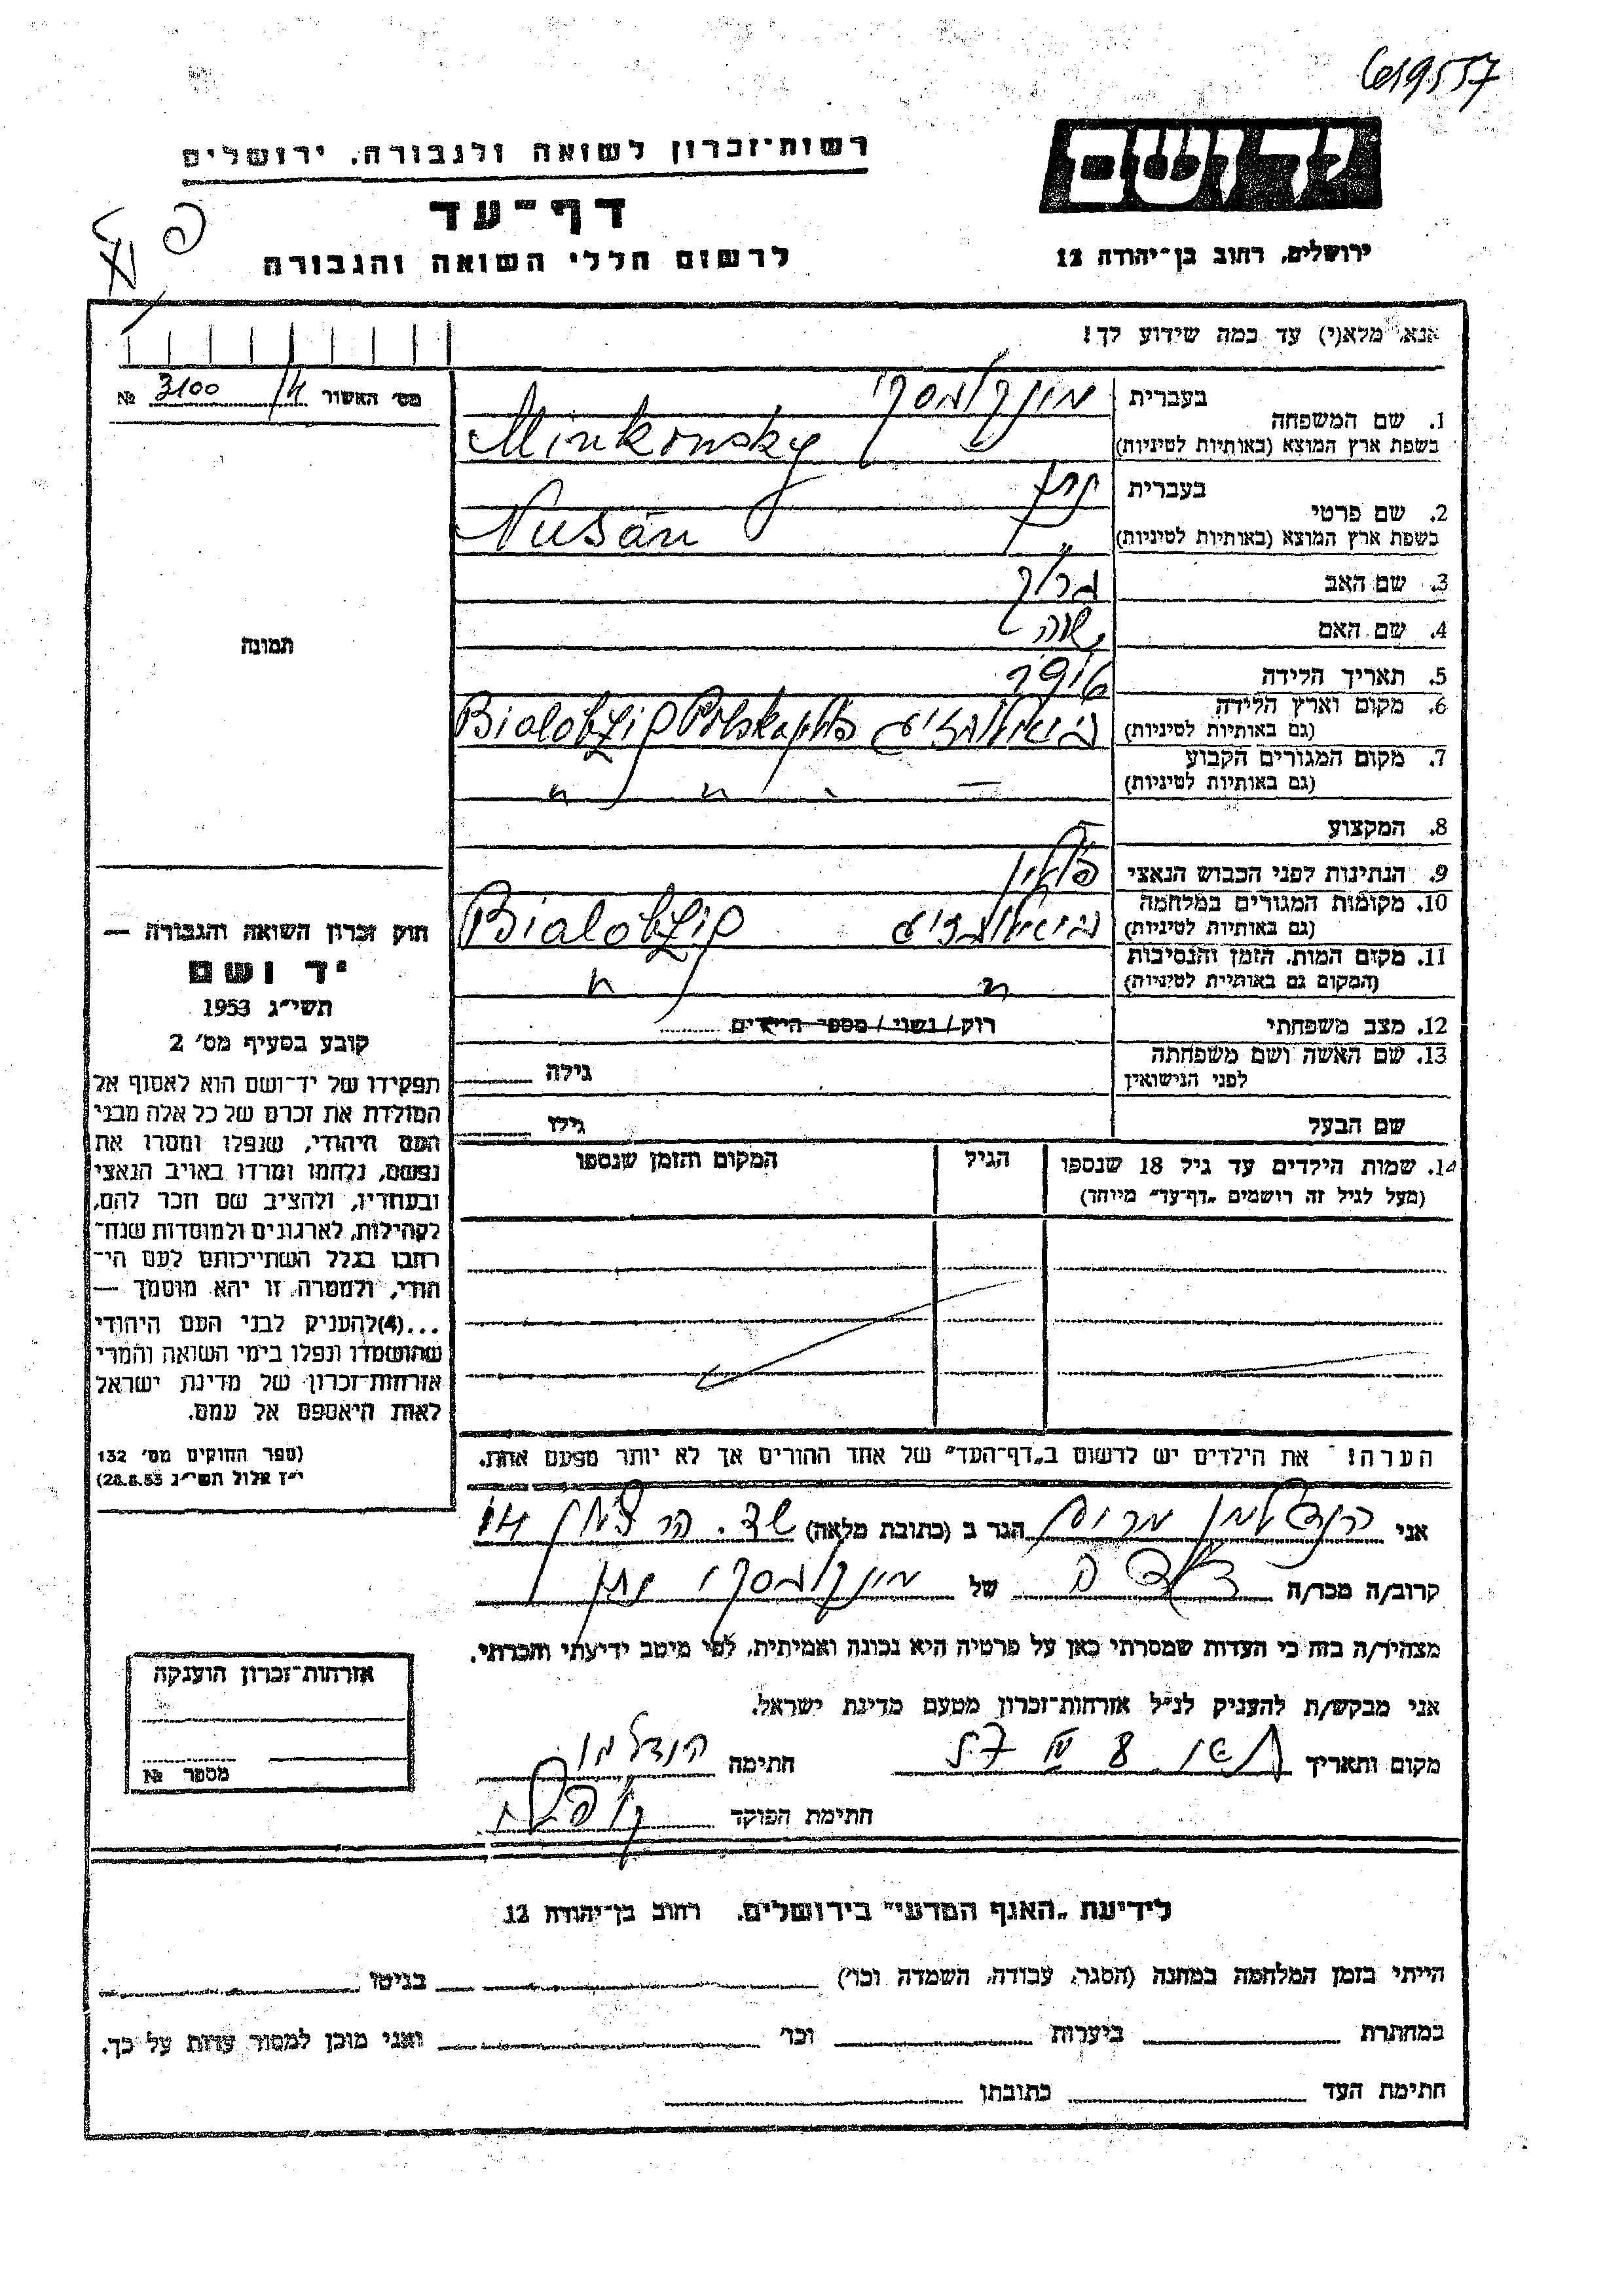 619557
יד ושם
רשות־זכרון לשואה ולגבורה, ירושלים
דף־עד
לרשום חללי השואה והגבורה
ירושלים, רחוב בן־יהודה 12
אנא, מלא(י) עד כמה שידוע לך!
מס׳ האשור 3100 №
1. שם המשפחה
בעברית מינקובסקי
בשפת ארץ המוצא (באותיות לטיניות) Minkowsky
2. שם פרטי
בעברית נתן
בשפת ארץ המוצא (באותיות לטיניות) Nusan
3. שם האב
4. שם האם שרה
5. תאריך הלידה
6. מקום וארץ הלידה
(גם באותיות לטיניות) Polska
7. מקום המגורים הקבוע
(גם באותיות לטיניות) " "
8. המקצוע —
9. הנתינות לפני הכבוש הנאצי פולין
10. מקומות המגורים במלחמה
(גם באותיות לטיניות)
11. מקום המות, הזמן והנסיבות
(המקום גם באותיות לטיניות) " "
12. מצב משפחתי רוק / נשוי / מספר הילדים
13. שם האשה ושם משפחתה
לפני הנישואין גילה
שם הבעל גילו
14. שמות הילדים עד גיל 18 שנספו הגיל המקום והזמן שנספו
(מעל לגיל זה רושמים „דף־עד" מיוחד)
תמונה
חוק זכרון השואה והגבורה —
יד ושם
תשי״ג 1953
קובע בסעיף מס׳ 2
תפקידו של יד־ושם הוא לאסוף אל
המולדת את זכרם של כל אלה מבני
העם היהודי, שנפלו ומסרו את
נפשם, נלחמו ומרדו באויב הנאצי
ובעוזריו, ולהציב שם וזכר להם,
לקהילות, לארגונים ולמוסדות שנח־
רבו בגלל השתייכותם לעם הי־
הודי, ולמטרה זו יהא מוסמך —
...(4)להעניק לבני העם היהודי
שהושמדו ונפלו בימי השואה והמרי
אזרחות־זכרון של מדינת ישראל
לאות היאספם אל עמם.
(ספר החוקים מס׳ 132
י״ז אלול תשי״ג 28.8.53)
הערה! את הילדים יש לרשום ב„דף־העד" של אחד ההורים אך לא יותר מפעם אחת.
אני הנדלמן מרים הגר ב (כתובת מלאה) שד. הר 14
קרוב/ה מכר/ה של מינקובסקי נתן
מצהיר/ה בזה כי העדות שמסרתי כאן על פרטיה היא נכונה ואמיתית, לפי מיטב ידיעתי והכרתי.
אני מבקש/ת להעניק לנ״ל אזרחות־זכרון מטעם מדינת ישראל.
מקום ותאריך חתימה הנדלמן
חתימת הפוקד
אזרחות־זכרון הוענקה
מספר №
לידיעת „האגף המדעי" בירושלים, רחוב בן־יהודה 12
הייתי בזמן המלחמה במחנה (הסגר, עבודה, השמדה וכו׳) בגיטו
במחתרת ביערות וכו׳ ואני מוכן למסור עדות על כך.
חתימת העד כתובתו